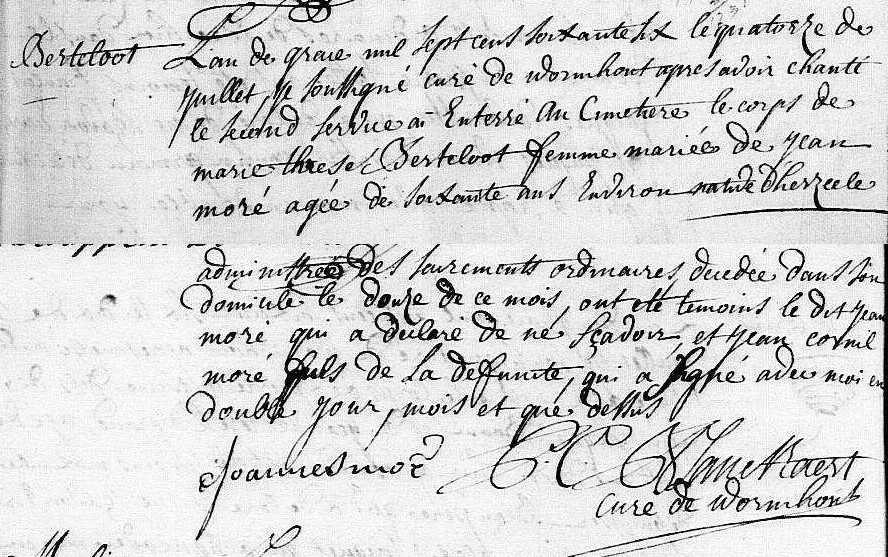 Berteloot L'an de grace mil sept cens soixante six le quatorze de
juillet, je soussigné curé de wormhout apres avoir chanté
le second service ai Enterré Au Cimetiere le corps de
marie therese Berteloot femme mariée de jean
moré agée de soixante ans Environ native d'herzeele
administrée des sacrements ordinaires decedée dans son
domicile le douze de ce mois, ont eté temoins le dit jean
moré qui a declaré de ne sçavoir, et jean cornil
moré fils de la deffunte, qui a signé avec moi en
double jour, mois et que dessus
Joannes moré
curé de wormhout